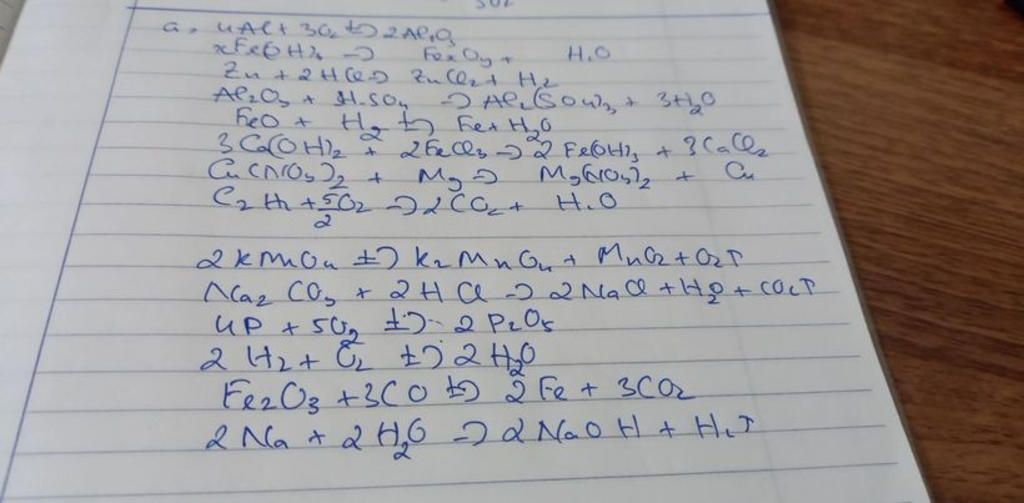 a, 4Al + 3O2 t°→ 2Al2O3
xFe(OH)3 → FexOy + H2O
Zn + 2HCl → ZnCl2 + H2
Al2O3 + H2SO4 → Al2(SO4)3 + 3H2O
FeO + H2 t°→ Fe + H2O
3Ca(OH)2 + 2FeCl3 → 2Fe(OH)3 + 3CaCl2
Cu(NO3)2 + Mg → Mg(NO3)2 + Cu
C2H2 + 5/2O2 → 2CO2 + H2O
2KMnO4 t°→ K2MnO4 + MnO2 + O2↑
Na2CO3 + 2HCl → 2NaCl + H2O + CO2↑
4P + 5O2 t°→ 2P2O5
2H2 + O2 t°→ 2H2O
Fe2O3 + 3CO t°→ 2Fe + 3CO2
2Na + 2H2O → 2NaOH + H2↑